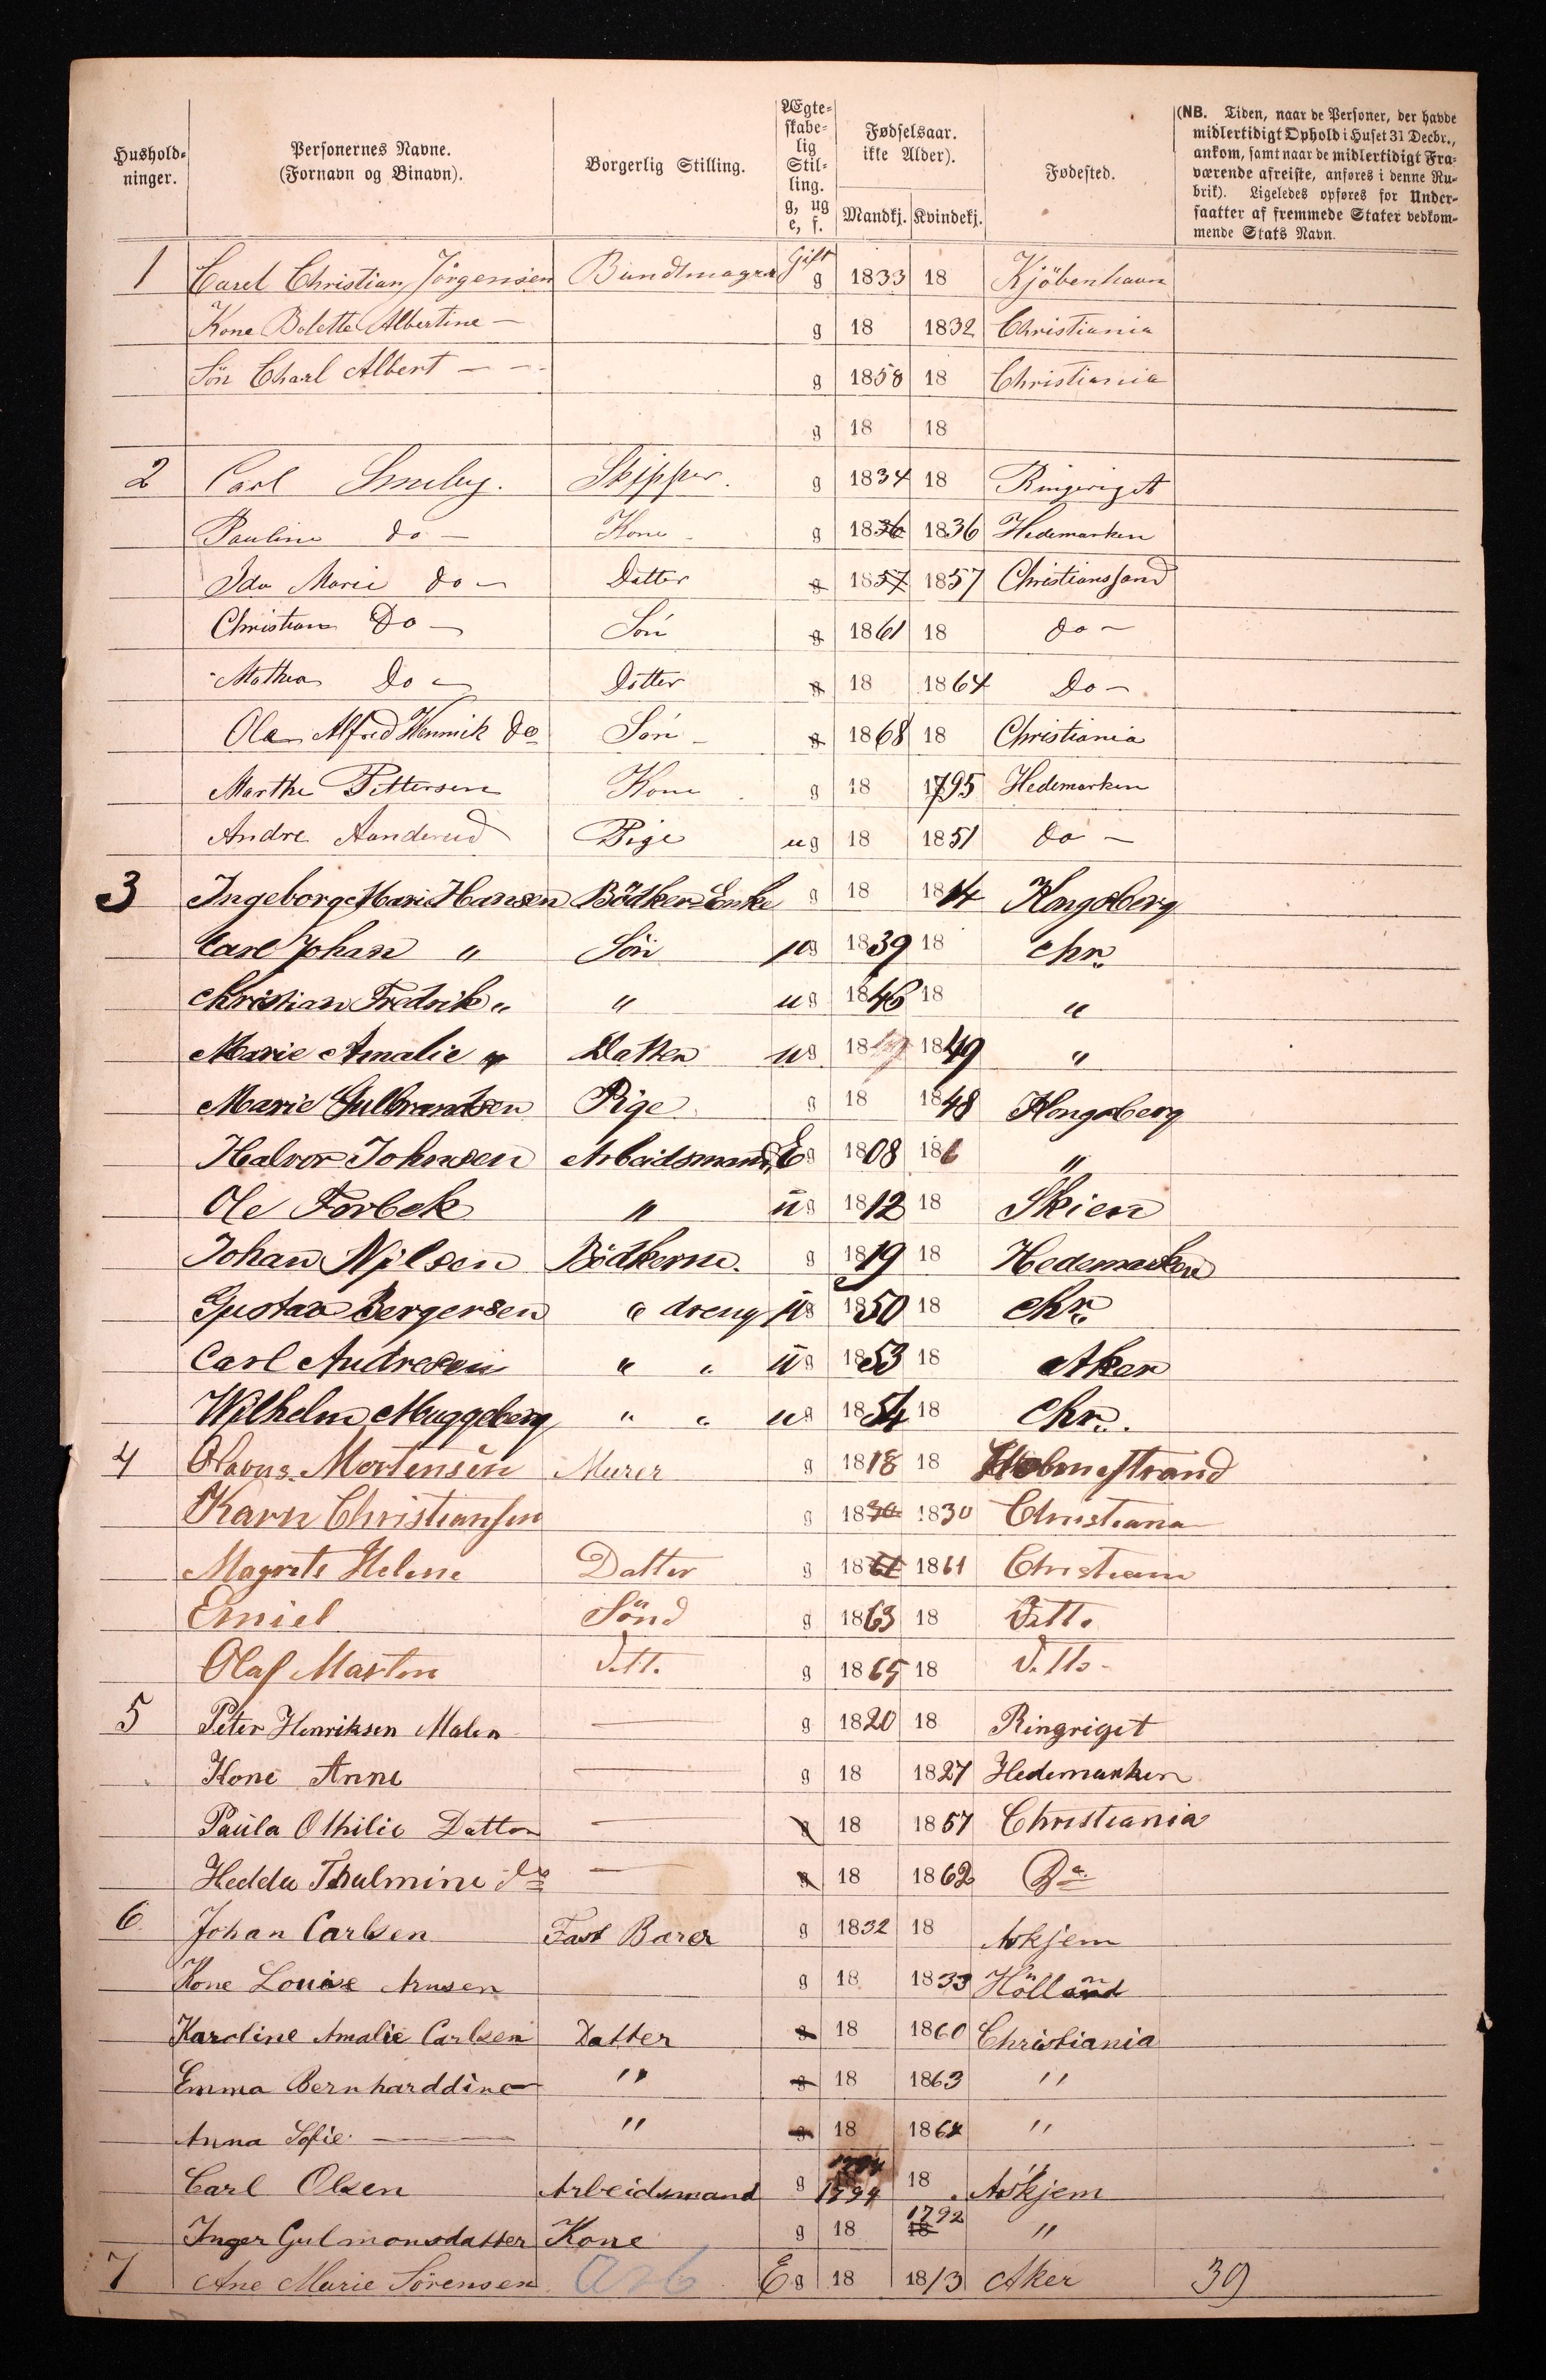 Hushold-
ninger.
Personernes Navne.
(Fornavn og Binavn).
Borgerlig Stilling.
Ægte-
skabe-
lig
Stil-
ling.
g, ug
e, f.
Fødselsaar.
ikke Alder).
Mandkj. Kvindekj.
Fødested.
(NB. Tiden, naar de Personer, der havde
midlertidigt Ophold i Huset 31 Decbr.,
ankom, samt naar de midlertidigt Fra-
værende afreiste, anføres i denne Ru-
brik). Ligeledes opføres for Under-
saatter af fremmede Stater vedkom-
mende Stats Navn.
1 Carel Christian Jørgensen Bundtmager Gift g 1833 18 Kjöbenhavn
Kone Bolette Albertine — g 18 1832 Christiania
Sön Charl Albert — — g 1858 18 Christiania
g 18 18
2 Carl Smeby. Skipper. g 1834 18 Ringeriget
Pauline do — Kone g 1836 1836 Hedemarken
Ida Marie do — Datter g 1857 1857 Christianssand
Christian Do — Sön g 1861 18 do —
Mathea Do — Datter g 18 1864 Do —
Ole Alfred Hennrik do Sön g 1868 18 Christiania
Marthe Pettersen Kone g 18 1795 Hedemarken
Andre Aanderud Pige ug 18 1851 do —
3 Ingeborg Marie Hansen Bödker Enke g 18 1814 Kongsberg
Carl Johan " Sön ug 1839 18 Chr.
Christian Fredrik " " ug 1846 18 "
Marie Amalie " Datter ug 1849 1849 "
Marie Gulbrandsen Pige g 18 1848 Kongsberg
Halvor Johnsen Arbeidsmand, E g 1808 18 "
Ole Forbek " ug 1812 18 Skien
Johan Nilsen Bödkerm. g 1819 18 Hedemarken
Gustav Bergersen " dreng ug 1850 18 Chr.
Carl Andresen " " ug 1853 18 Aker
Wilhelm Muggeberg " " ug 1854 18 Chr.
4 Olavus Mortensen Murer g 1818 18 Holmestrand
Karn Christiansen g 1830 1830 Christiana
Magrete Helene Datter g 1861 1861 Christiania
Emiel Sönd g 1863 18 Ditto
Olaf Martin Ditto g 1865 18 Ditto
5 Peter Henriksen Malen — g 1820 18 Ringriget
Kone Anne — g 18 1827 Hedemarken
Paula Othilie Datter — g 18 1857 Christiania
Hedda Thalmine do — g 18 1862 Do
6 Johan Carlsen Fast Bærer g 1832 18 Askjem
Kone Louise Arnsen g 18 1833 Hölland
Karoline Amalie Carlsen Datter g 18 1860 Christiania
Emma Bernharddine " g 18 1863 "
Anna Sofie — " g 18 1864 "
Carl Olsen Arbeidsmand g 1794 18 Askjem
Inger Gulmonsdatter Kone g 18 1792 "
7 Ane Marie Sörensen Arb E g 18 1813 Aker 39